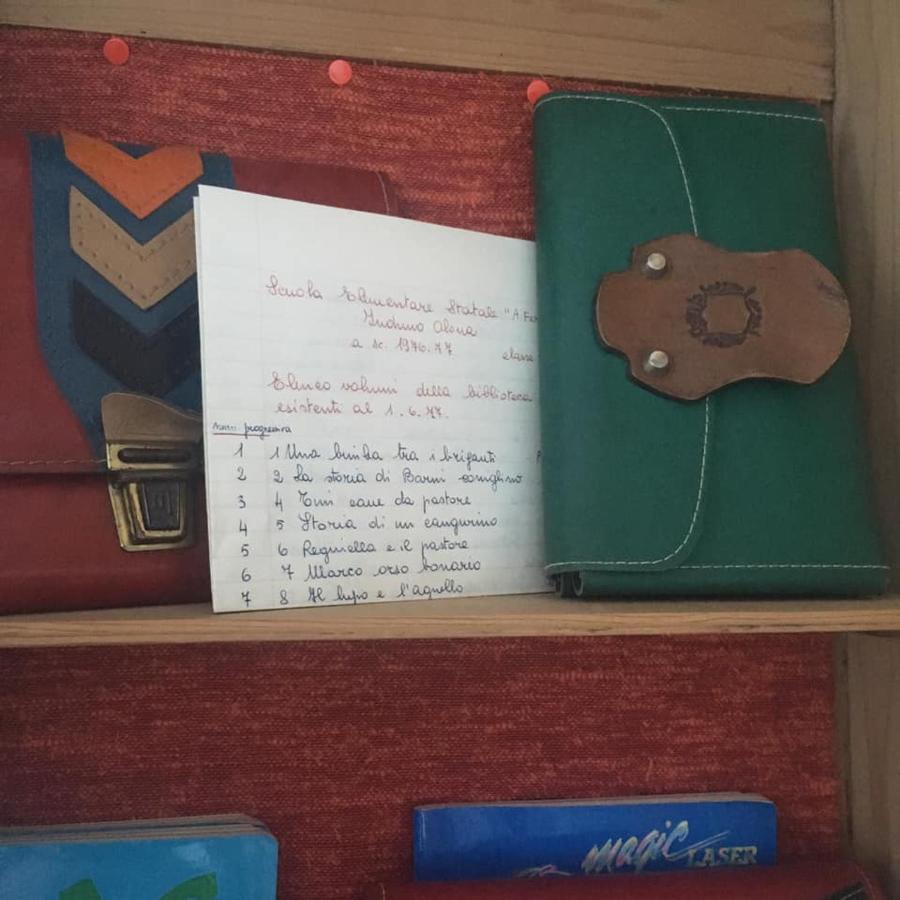 Scuola Elementare Statale "A. Fer
Induno Olona
a. sc. 1976.77 classe
Elenco volumi della biblioteca
esistenti al 1.6.77.
progressivo
1 1 Una bimba tra i briganti
2 2 La storia di Barni coniglino
3 4 Toni cane da pastore
4 5 Storia di un cangurino
5 6 Reginella e il pastore
6 7 Marco orso bonario
7 8 Il lupo e l'agnello
magic LASER